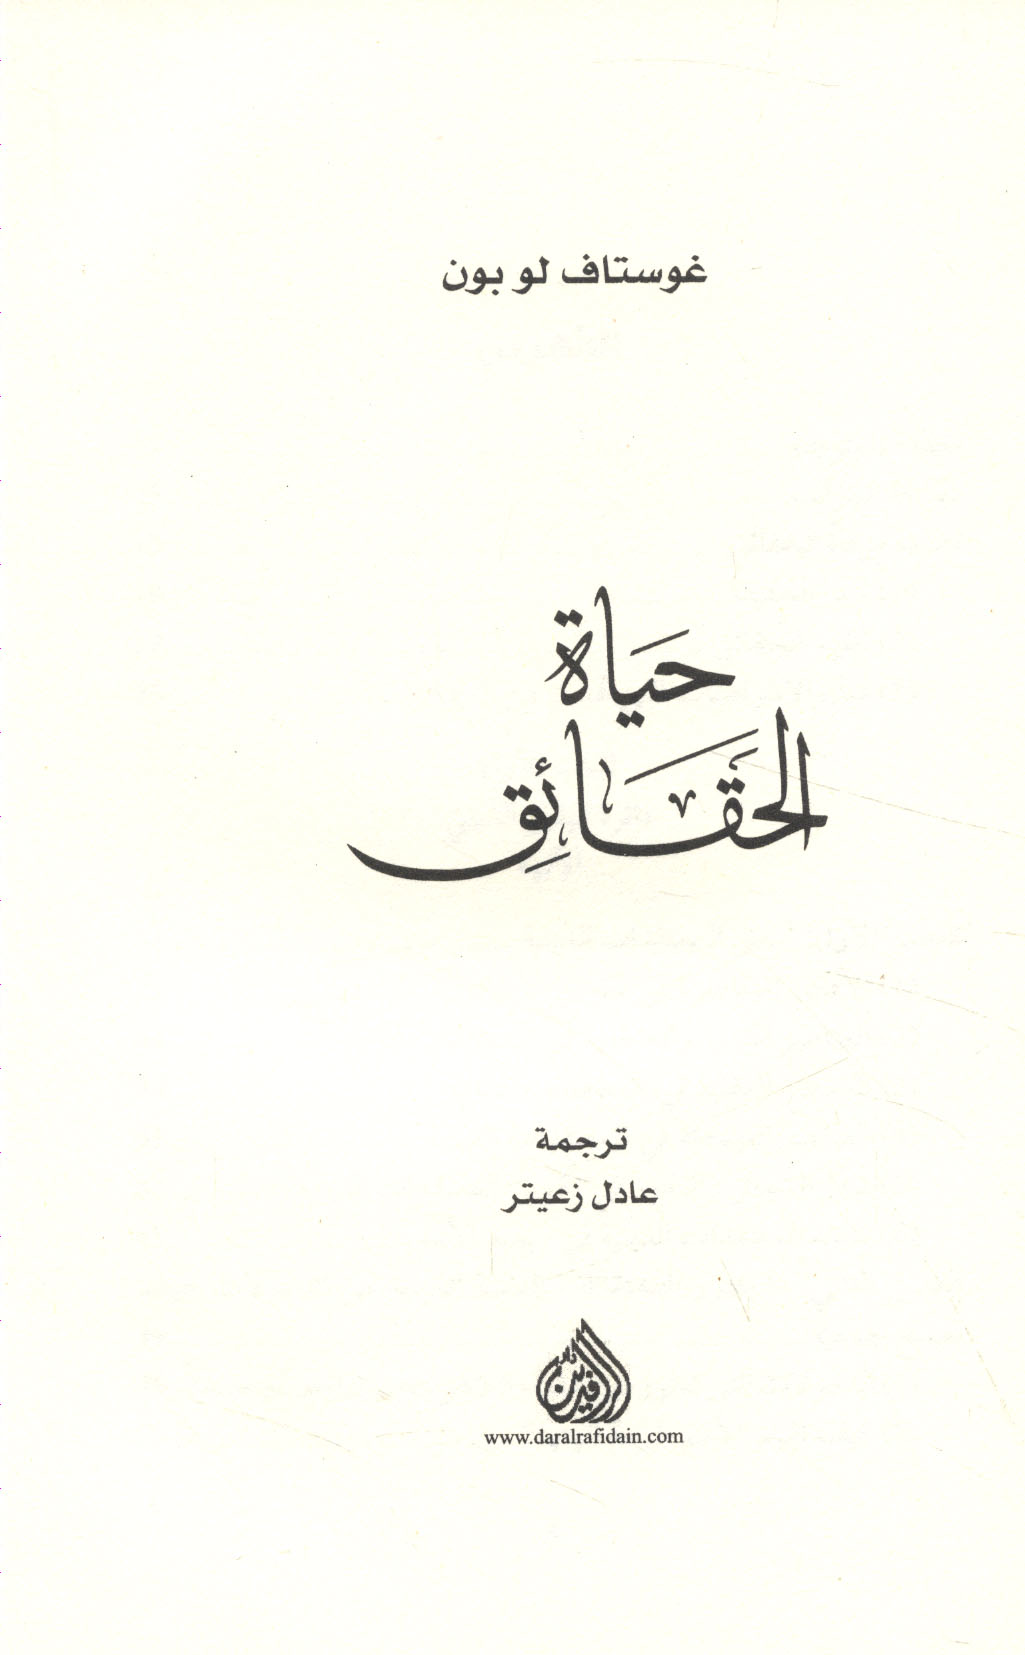 غوستاف لو بون
حياة
الحقائق
ترجمة
عادل زعيتر
دار الرافدين
www.daralrafidain.com